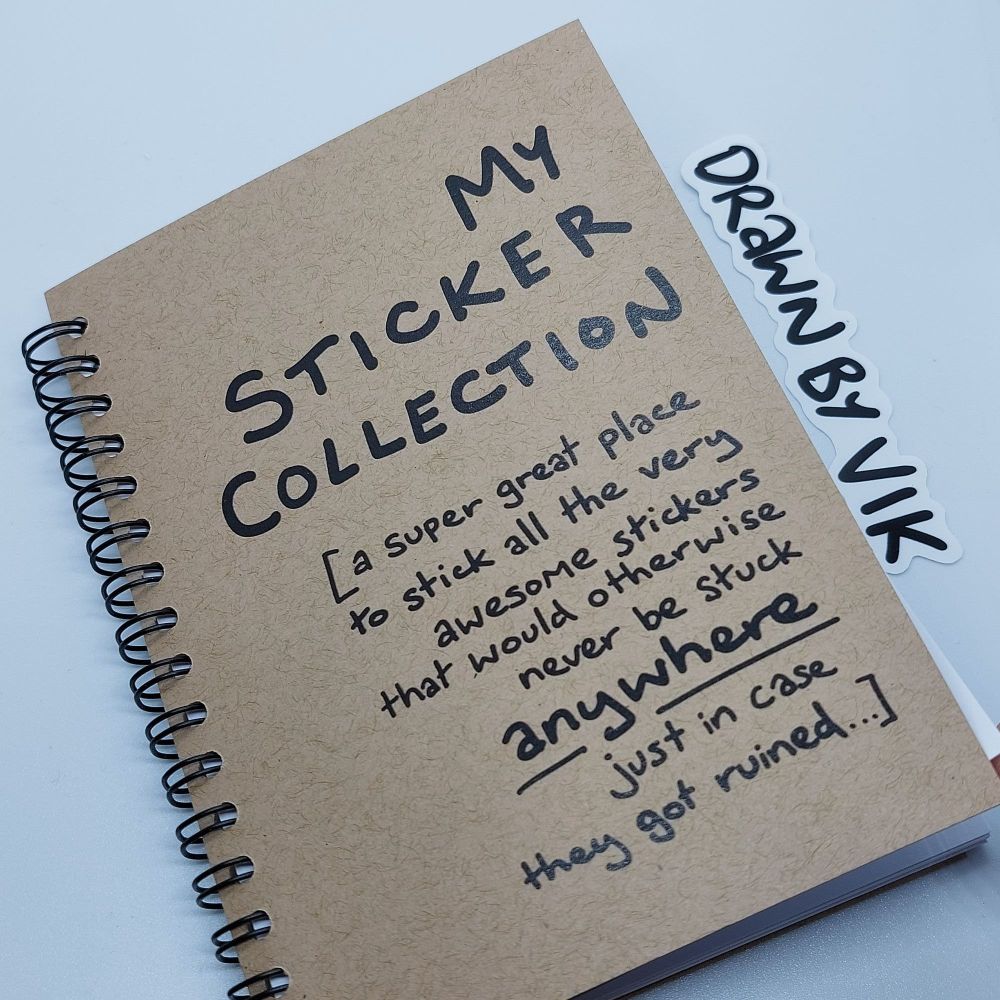 My
STICKER
COLLECTION
[a super great place
to stick all the very
awesome stickers
that would otherwise
never be stuck
anywhere
just in case
they got ruined...]
DRaWN BY VIK